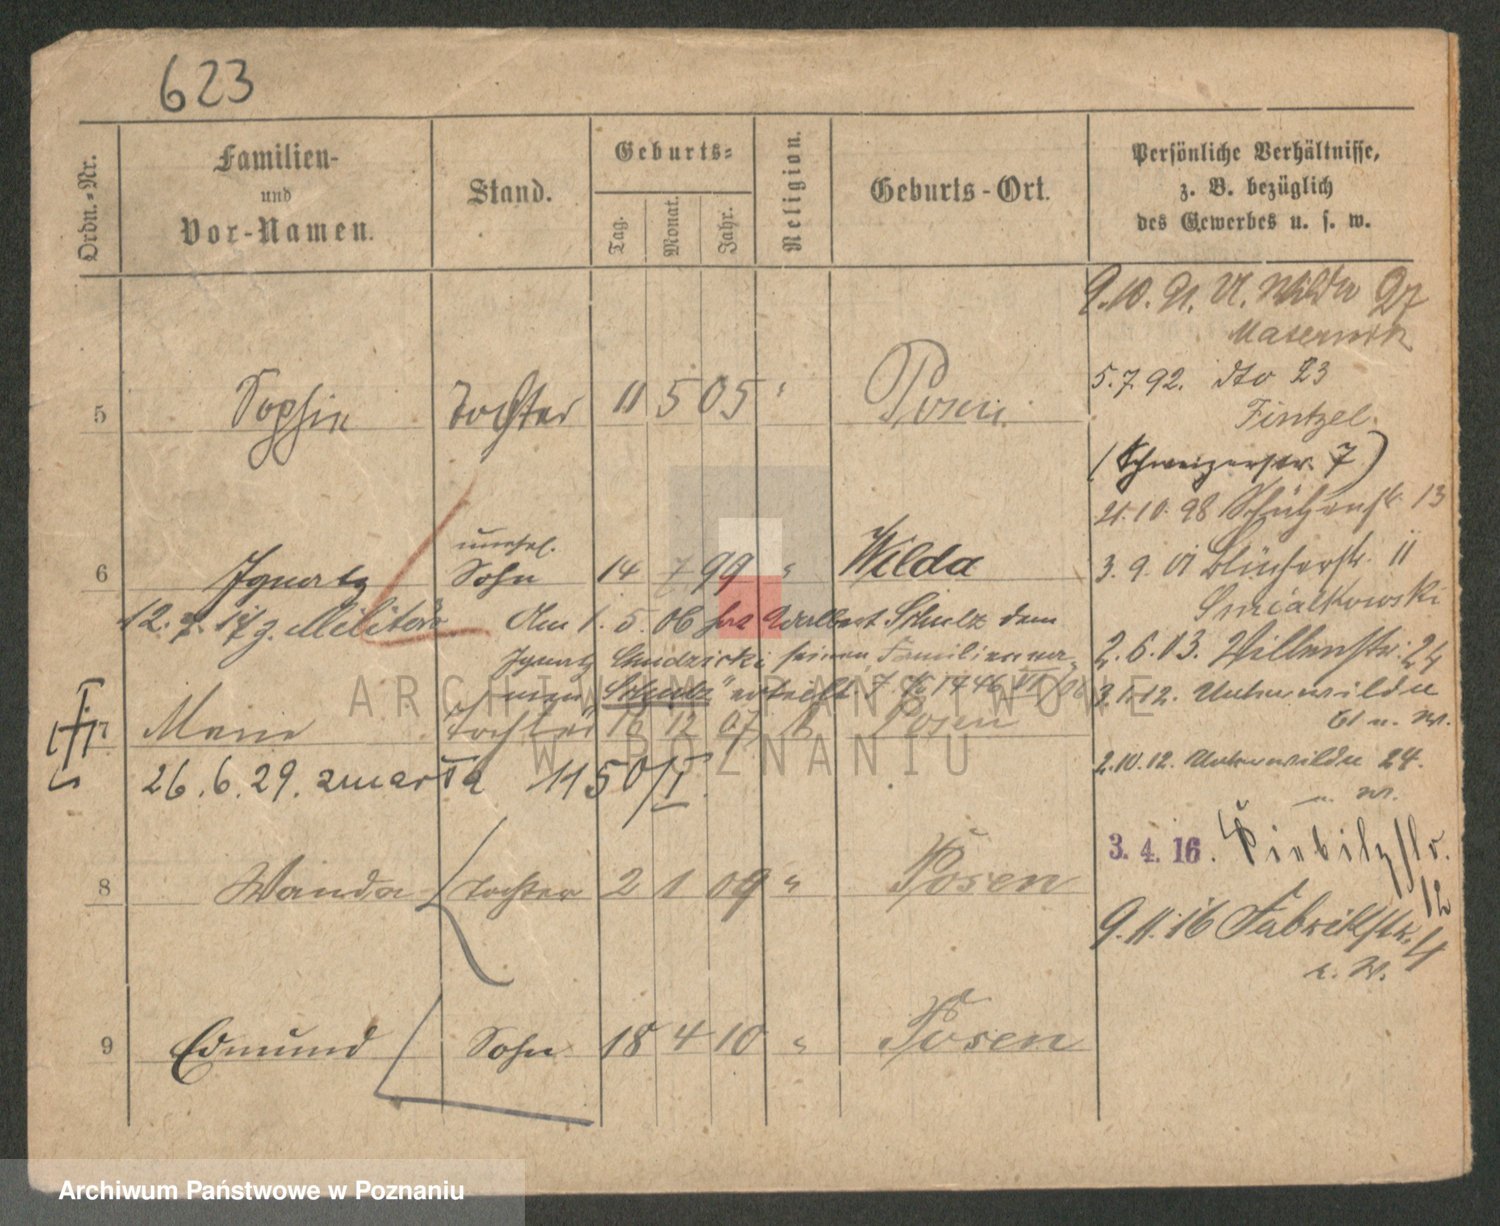 623
Ordn.-Nr.
Familien-
und
Vor-Namen.
Stand.
Geburts-
Tag.
Monat.
Jahr.
Religion.
Geburts-Ort.
Persönliche Verhältnisse,
z. B. bezüglich
des Gewerbes u. s. w.
5 Sophie Tochter 11 5 05 " Posen
6 Ignatz unehel.
Sohn 14 7 99 " Wilda
12. 7. 17 z. Militär
Am 1. 5. 06 hat Schulz dem
Ignatz seinen Familienna-
men „Schulz" erteilt.
7 Marie Tochter 16 12 07 Posen
26. 6. 29. zmarła 1150/I
8 Wanda Tochter 2 1 09 " Posen
9 Edmund Sohn 18 4 10 " Posen
9. 10. 91. Wilda 27
5. 7. 92. dto 23
Fintzel
(Schweizerstr. 7)
21. 10. 98 Schützenstr. 13
3. 9. 01 Blücherstr. 11
Smialkowski
2. 6. 03. 24
3. 1. 12. Unterwilda
61 u. W.
2. 10. 12. Unterwilda 24.
u. W.
3. 4. 16. Kiebitzstr.
12
9. 11. 16 Fabrikstr. 4
b. W.
ARCHIWUM PAŃSTWOWE
W POZNANIU
Archiwum Państwowe w Poznaniu